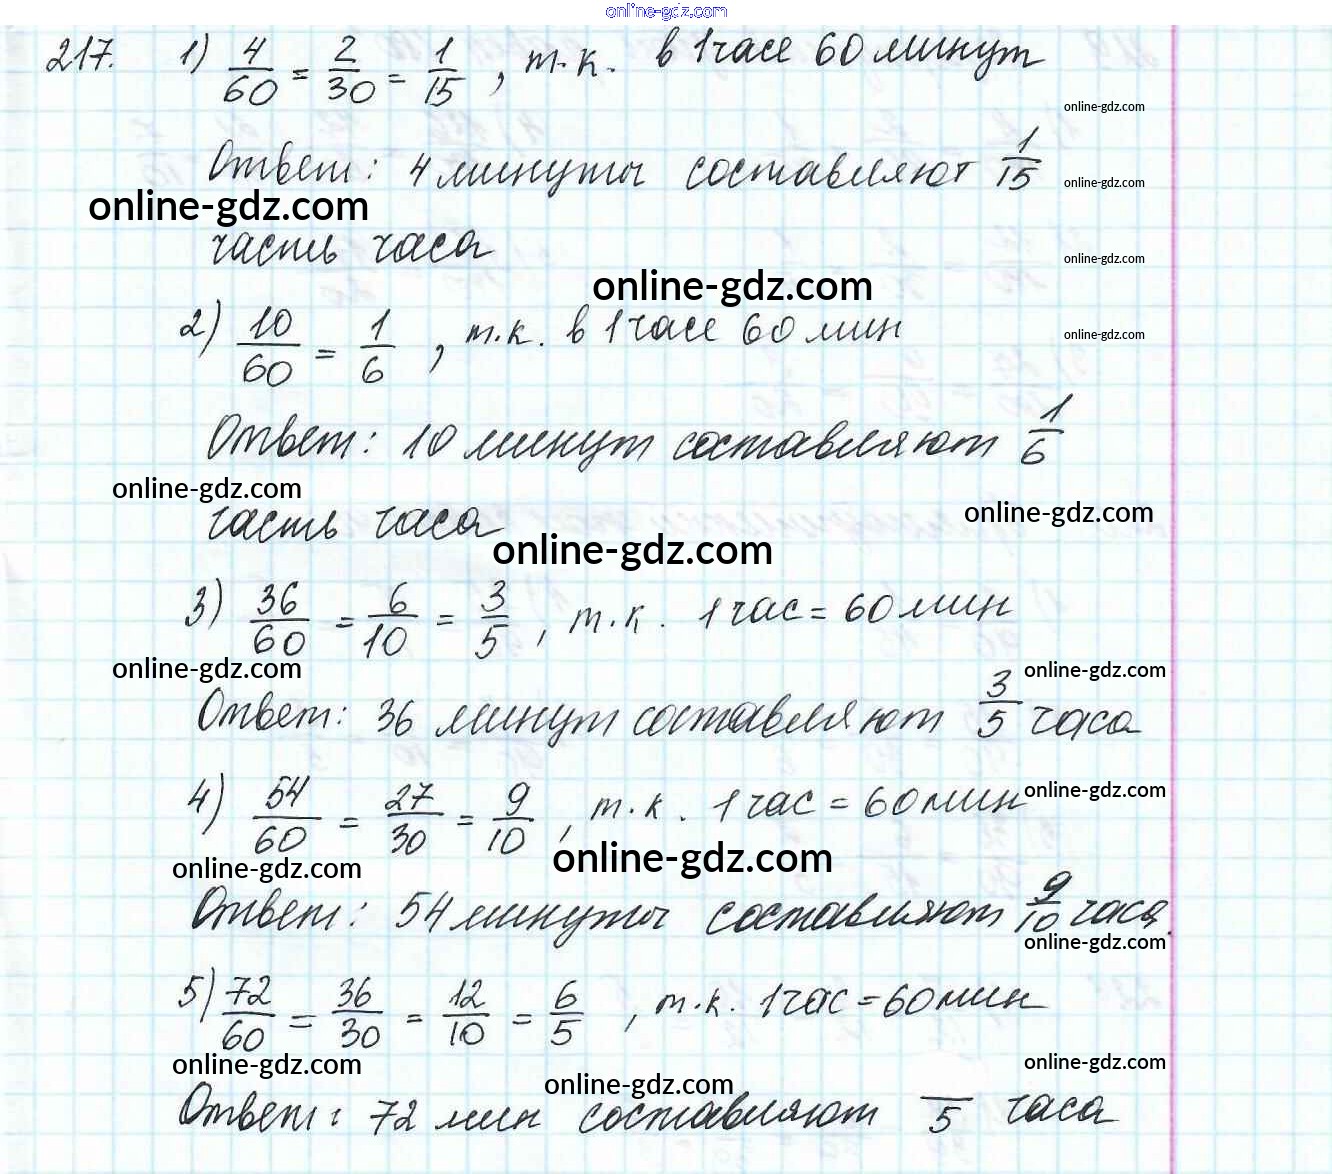 online-gdz.com
217. 1) 4/60 = 2/30 = 1/15, т.к. в 1 часе 60 минут
online-gdz.com
Ответ: 4 минуты составляют 1/15
online-gdz.com
online-gdz.com
часть часа
online-gdz.com
online-gdz.com
2) 10/60 = 1/6, т.к. в 1 часе 60 мин
online-gdz.com
Ответ: 10 минут составляют 1/6
online-gdz.com
часть часа
online-gdz.com
online-gdz.com
3) 36/60 = 6/10 = 3/5, т.к. 1 час = 60 мин
online-gdz.com
online-gdz.com
Ответ: 36 минут составляют 3/5 часа
4) 54/60 = 27/30 = 9/10, т.к. 1 час = 60 мин
online-gdz.com
online-gdz.com
online-gdz.com
Ответ: 54 минуты составляют 9/10 часа.
online-gdz.com
5) 72/60 = 36/30 = 12/10 = 6/5, т.к. 1 час = 60 мин
online-gdz.com
online-gdz.com
online-gdz.com
Ответ: 72 мин составляют /5 часа